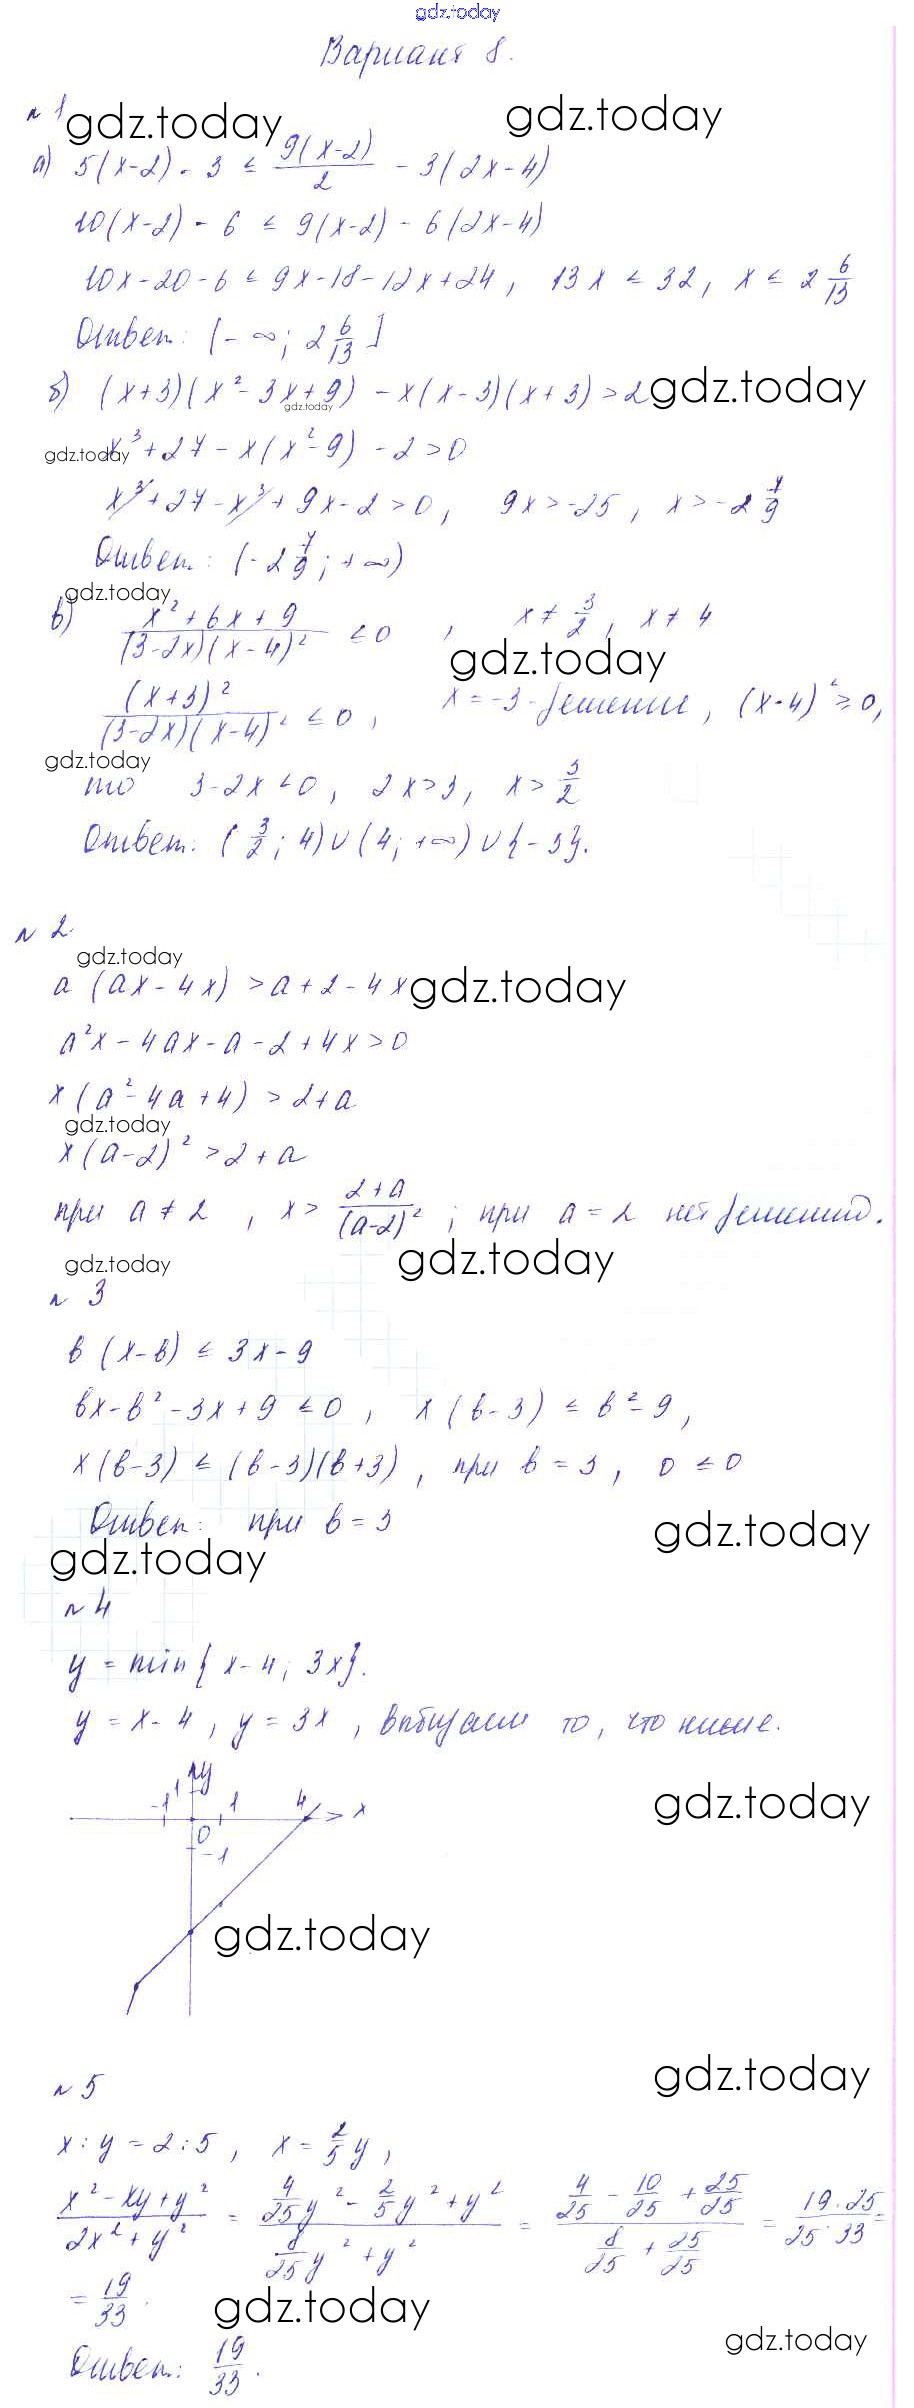 gdz.today
Вариант 8.
№ 1
gdz.today gdz.today
а) 5(x-2) - 3 ≤ 9(x-2)/2 - 3(2x-4)
10(x-2) - 6 ≤ 9(x-2) - 6(2x-4)
10x-20-6 ≤ 9x-18-12x+24, 13x ≤ 32, x ≤ 2 6/13
Ответ: (-∞; 2 6/13]
б) (x+3)(x²-3x+9) - x(x-3)(x+3) > 2
gdz.today
gdz.today
gdz.today
x³+27-x(x²-9)-2>0
x³+27-x³+9x-2>0, 9x>-25, x>-2 7/9
Ответ: (-2 7/9; +∞)
gdz.today
в) (x²+6x+9)/((3-2x)(x-4)²) ≤ 0, x ≠ 3/2, x ≠ 4
gdz.today
(x+3)²/((3-2x)(x-4)²) ≤ 0, x=-3-решение, (x-4)² ≥ 0,
gdz.today
то 3-2x<0, 2x>3, x>3/2
Ответ: (3/2; 4)∪(4; +∞)∪{-3}.
№ 2
gdz.today
a(ax-4x) > a+2-4x
gdz.today
a²x-4ax-a-2+4x>0
x(a²-4a+4) > 2+a
gdz.today
x(a-2)² > 2+a
при a ≠ 2, x > (2+a)/(a-2)²; при a=2 нет решений.
gdz.today gdz.today
№ 3
в(x-в) ≤ 3x-9
вx-в²-3x+9 ≤ 0, x(в-3) ≤ в²-9,
x(в-3) ≤ (в-3)(в+3), при в=3, 0 ≤ 0
Ответ: при в=3
gdz.today
gdz.today
№ 4
y = min{x-4; 3x}.
y = x-4, y = 3x, выбираем то, что ниже.
y
1
-1 1 4 x
0
-1
gdz.today
gdz.today
gdz.today
№ 5
x:y=2:5, x=2/5 y,
(x²-xy+y²)/(2x²+y²) = (4/25 y² - 2/5 y² + y²)/(8/25 y² + y²) = (4/25 - 10/25 + 25/25)/(8/25 + 25/25) = (19·25)/(25·33) =
= 19/33.
gdz.today
gdz.today
Ответ: 19/33.